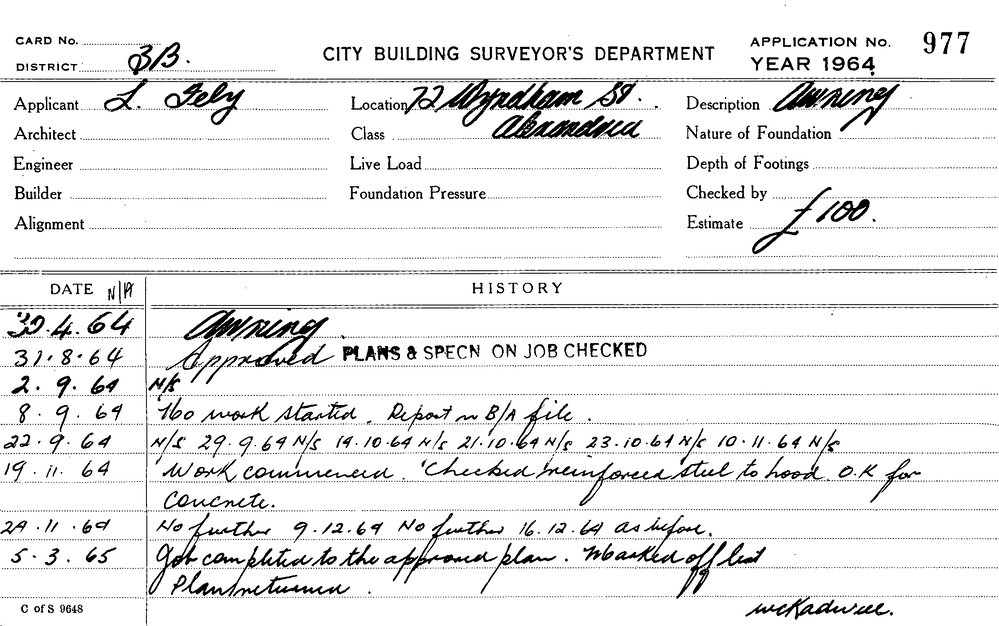 CARD No.
DISTRICT 3B.
CITY BUILDING SURVEYOR'S DEPARTMENT
APPLICATION No. 977
YEAR 1964
Applicant L. Fely
Location 72 Wyndham St.
Alexandria
Description Awning
Architect
Class
Nature of Foundation
Engineer
Live Load
Depth of Footings
Builder
Foundation Pressure
Checked by
Alignment
Estimate £100.
DATE N/A HISTORY
30.4.64 Awning
31.8.64 Approved PLANS & SPECN ON JOB CHECKED
2.9.64 N/S
8.9.64 No work started. Report in B/A file.
22.9.64 N/S 29.9.64 N/S 14.10.64 N/S 21.10.64 N/S 23.10.64 N/S 10.11.64 N/S
19.11.64 Work commenced. Checked reinforced steel to hood. O.K for
concrete.
24.11.64 No further 9.12.64 No further 16.12.64 as before.
5.3.65 Job completed to the approved plan. Marked off list
Plan returned.
C of S 9648